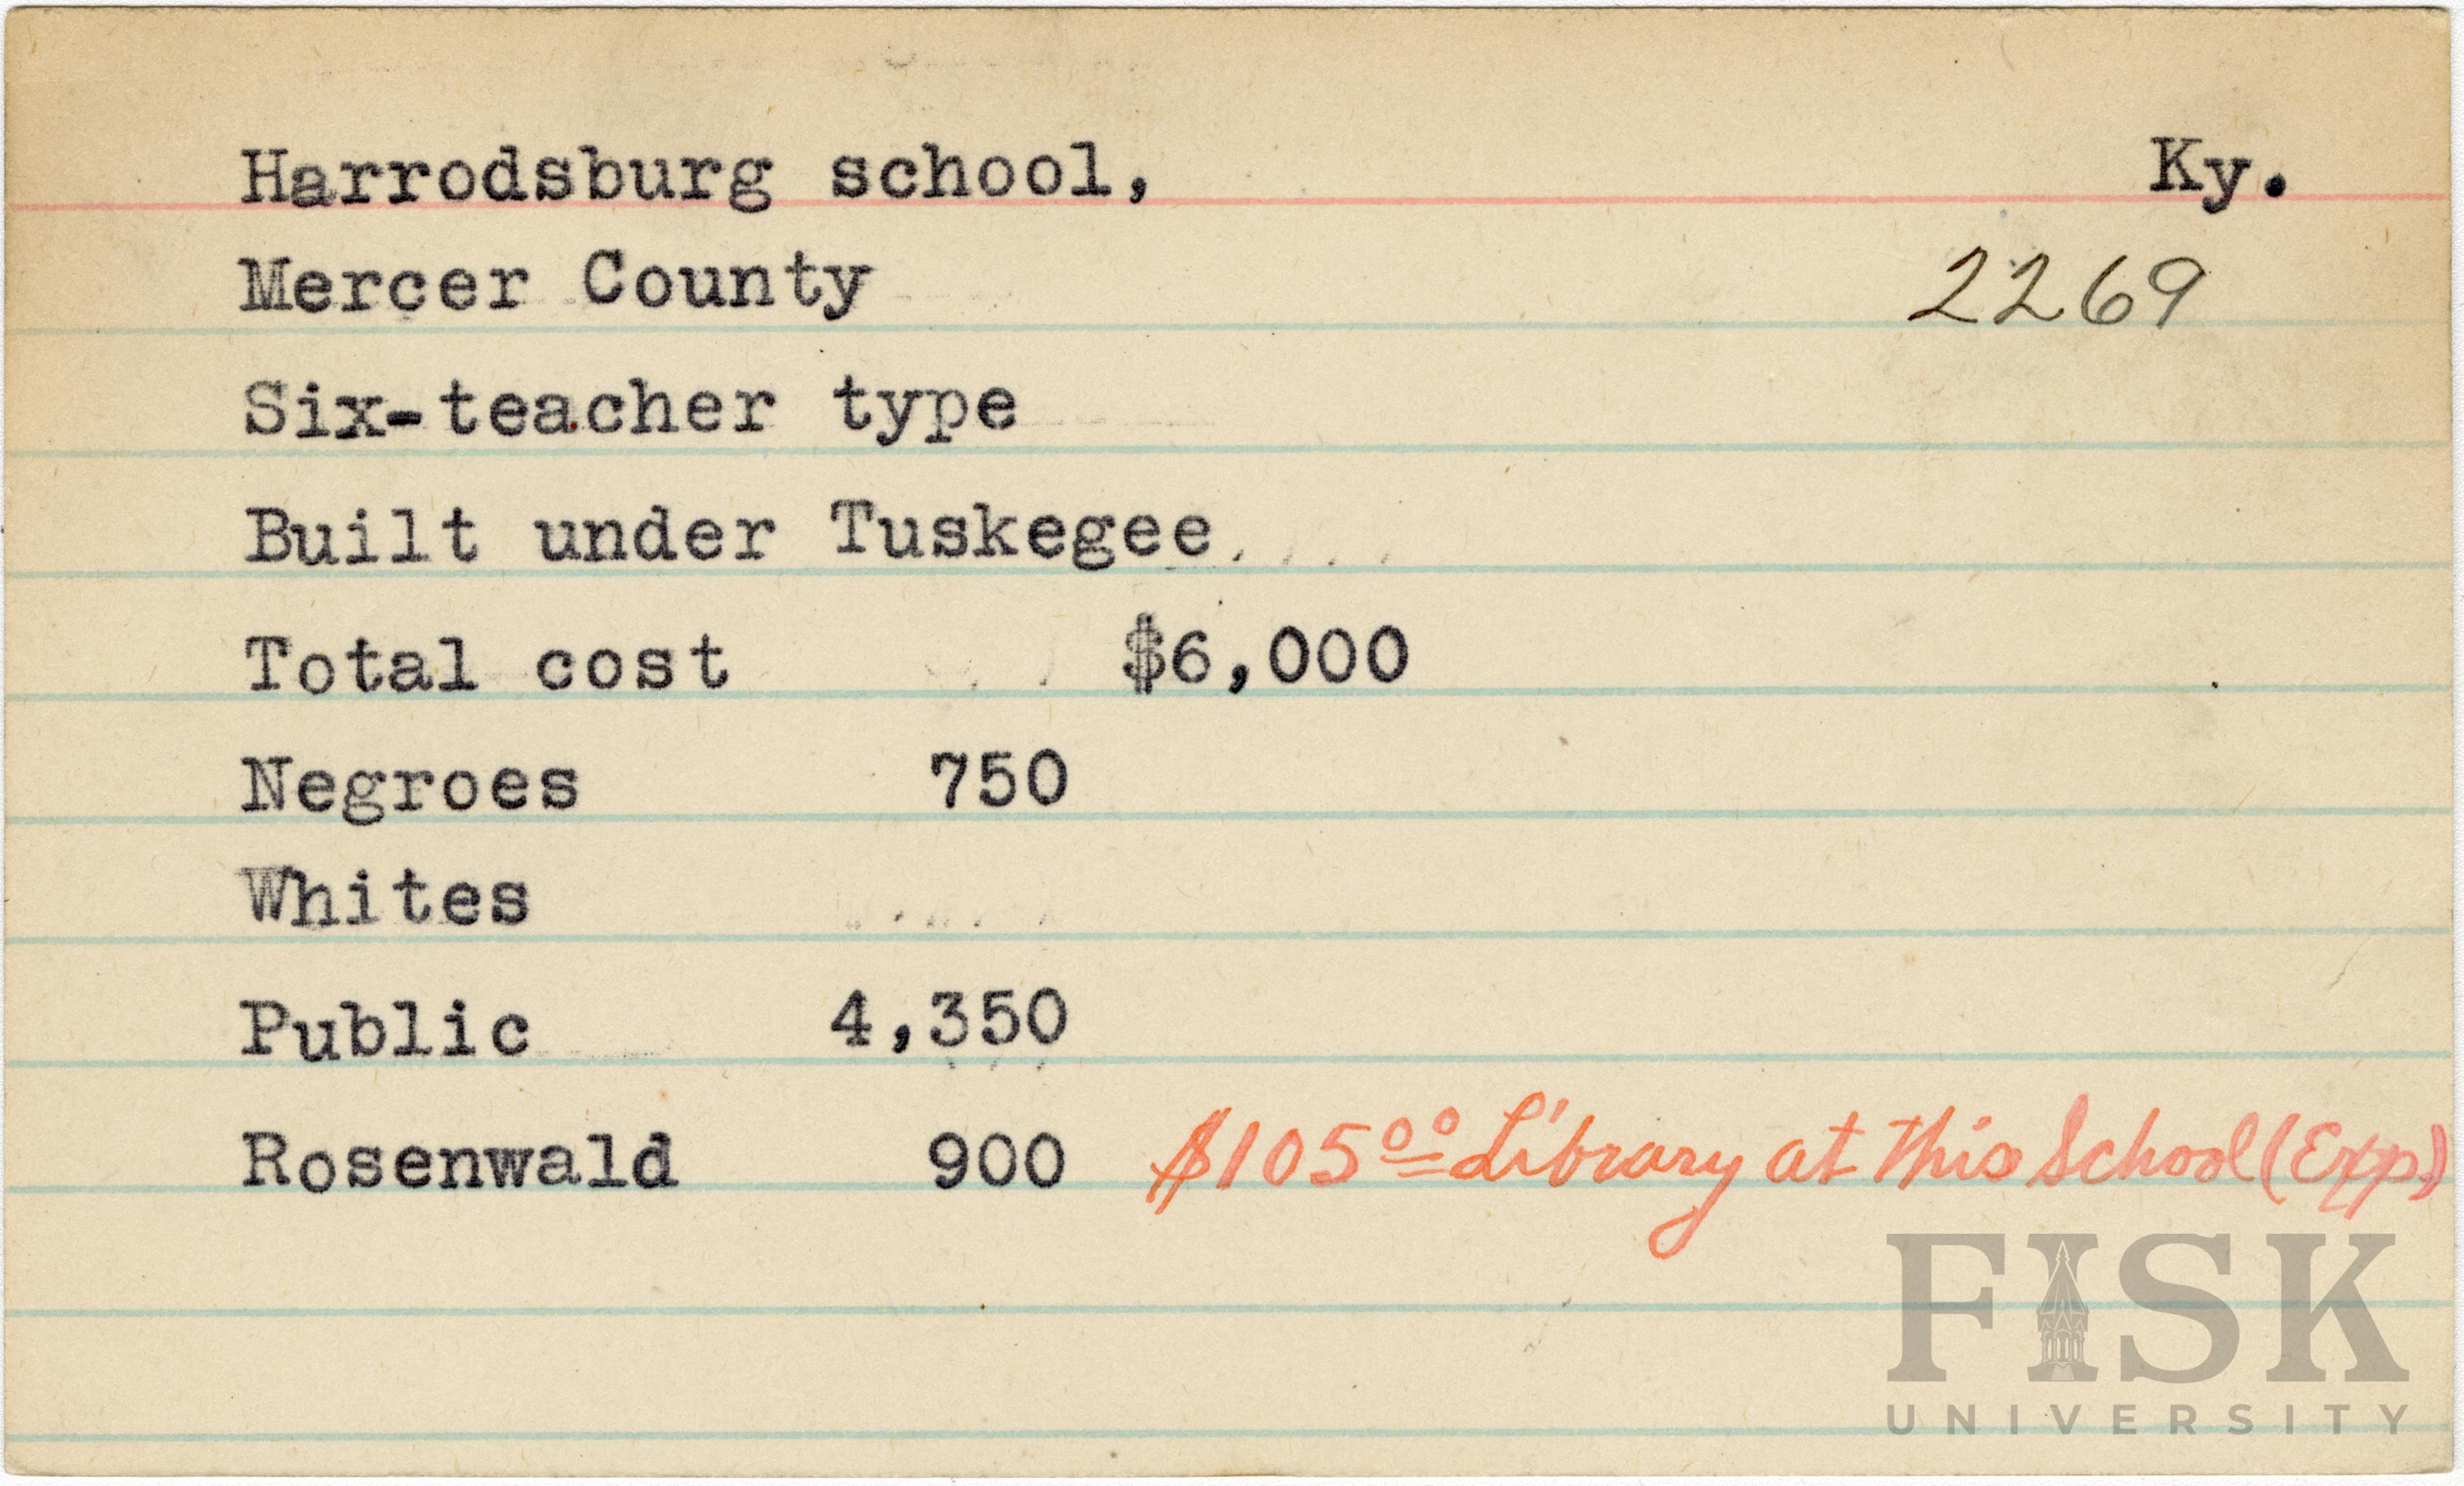 Harrodsburg school, Ky.
Mercer County 2269
Six-teacher type
Built under Tuskegee
Total cost $6,000
Negroes 750
Whites
Public 4,350
Rosenwald 900 $105.00 Library at this School (Exp)
FISK
UNIVERSITY